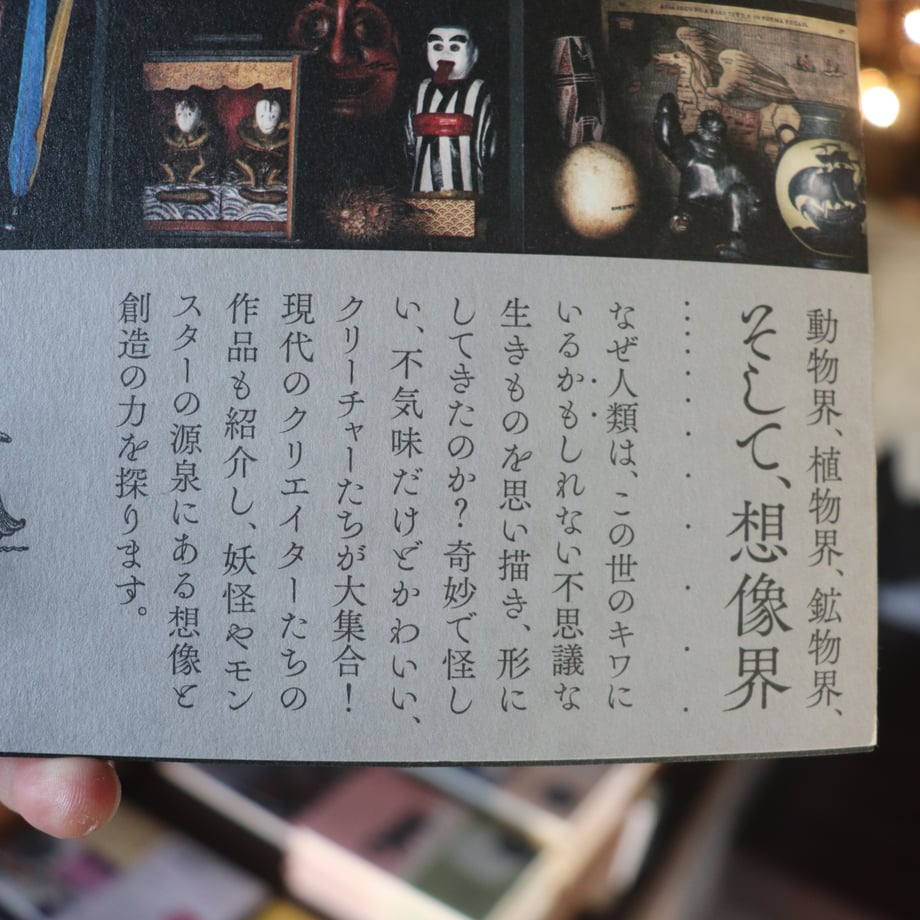 動物界、植物界、鉱物界、
そして、想像界
なぜ人類は、この世のキワに
いるかもしれない不思議な
生きものを思い描き、形に
してきたのか？奇妙で怪し
い、不気味だけどかわいい、
クリーチャーたちが大集合！
現代のクリエイターたちの
作品も紹介し、妖怪やモン
スターの源泉にある想像と
創造の力を探ります。